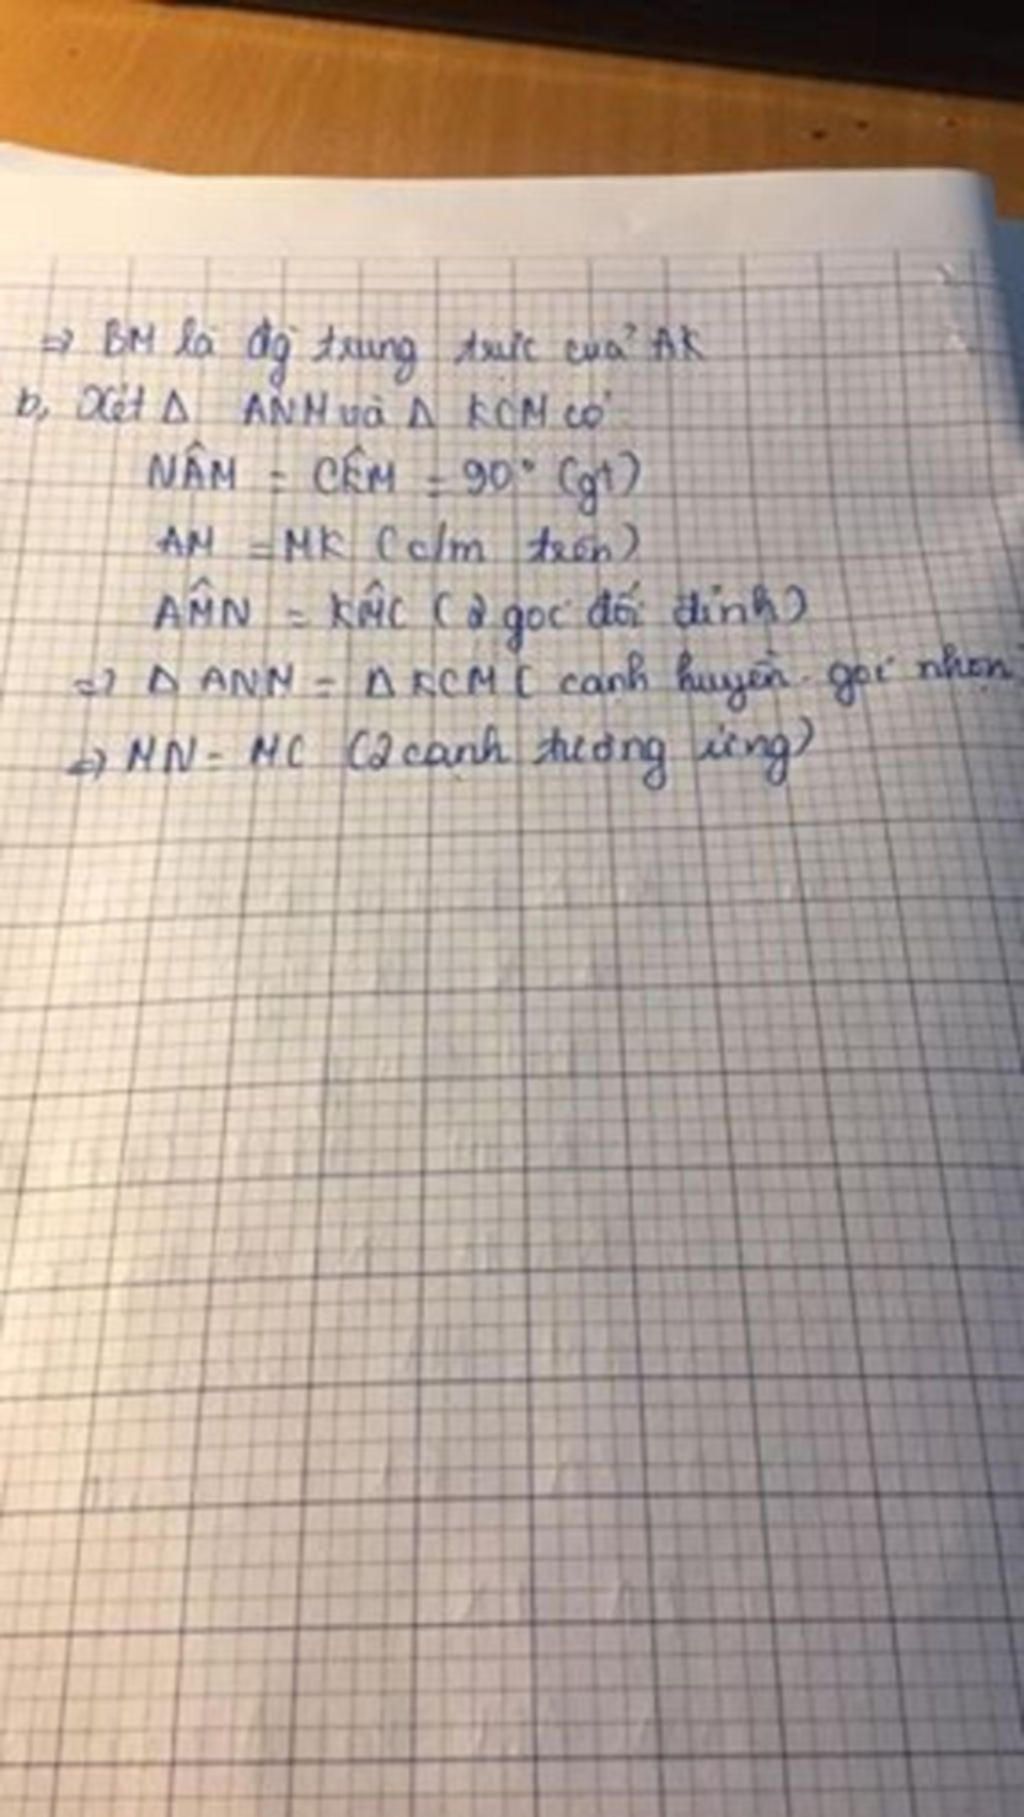 => BM là đg trung trực của AK
b, Xét Δ ANM và Δ KCM có
NÂM = CK̂M = 90° (gt)
AM = MK (c/m trên)
AM̂N = KM̂C (2 góc đối đỉnh)
=> Δ ANM = Δ KCM ( cạnh huyền - góc nhọn)
=> MN = MC (2 cạnh tương ứng)